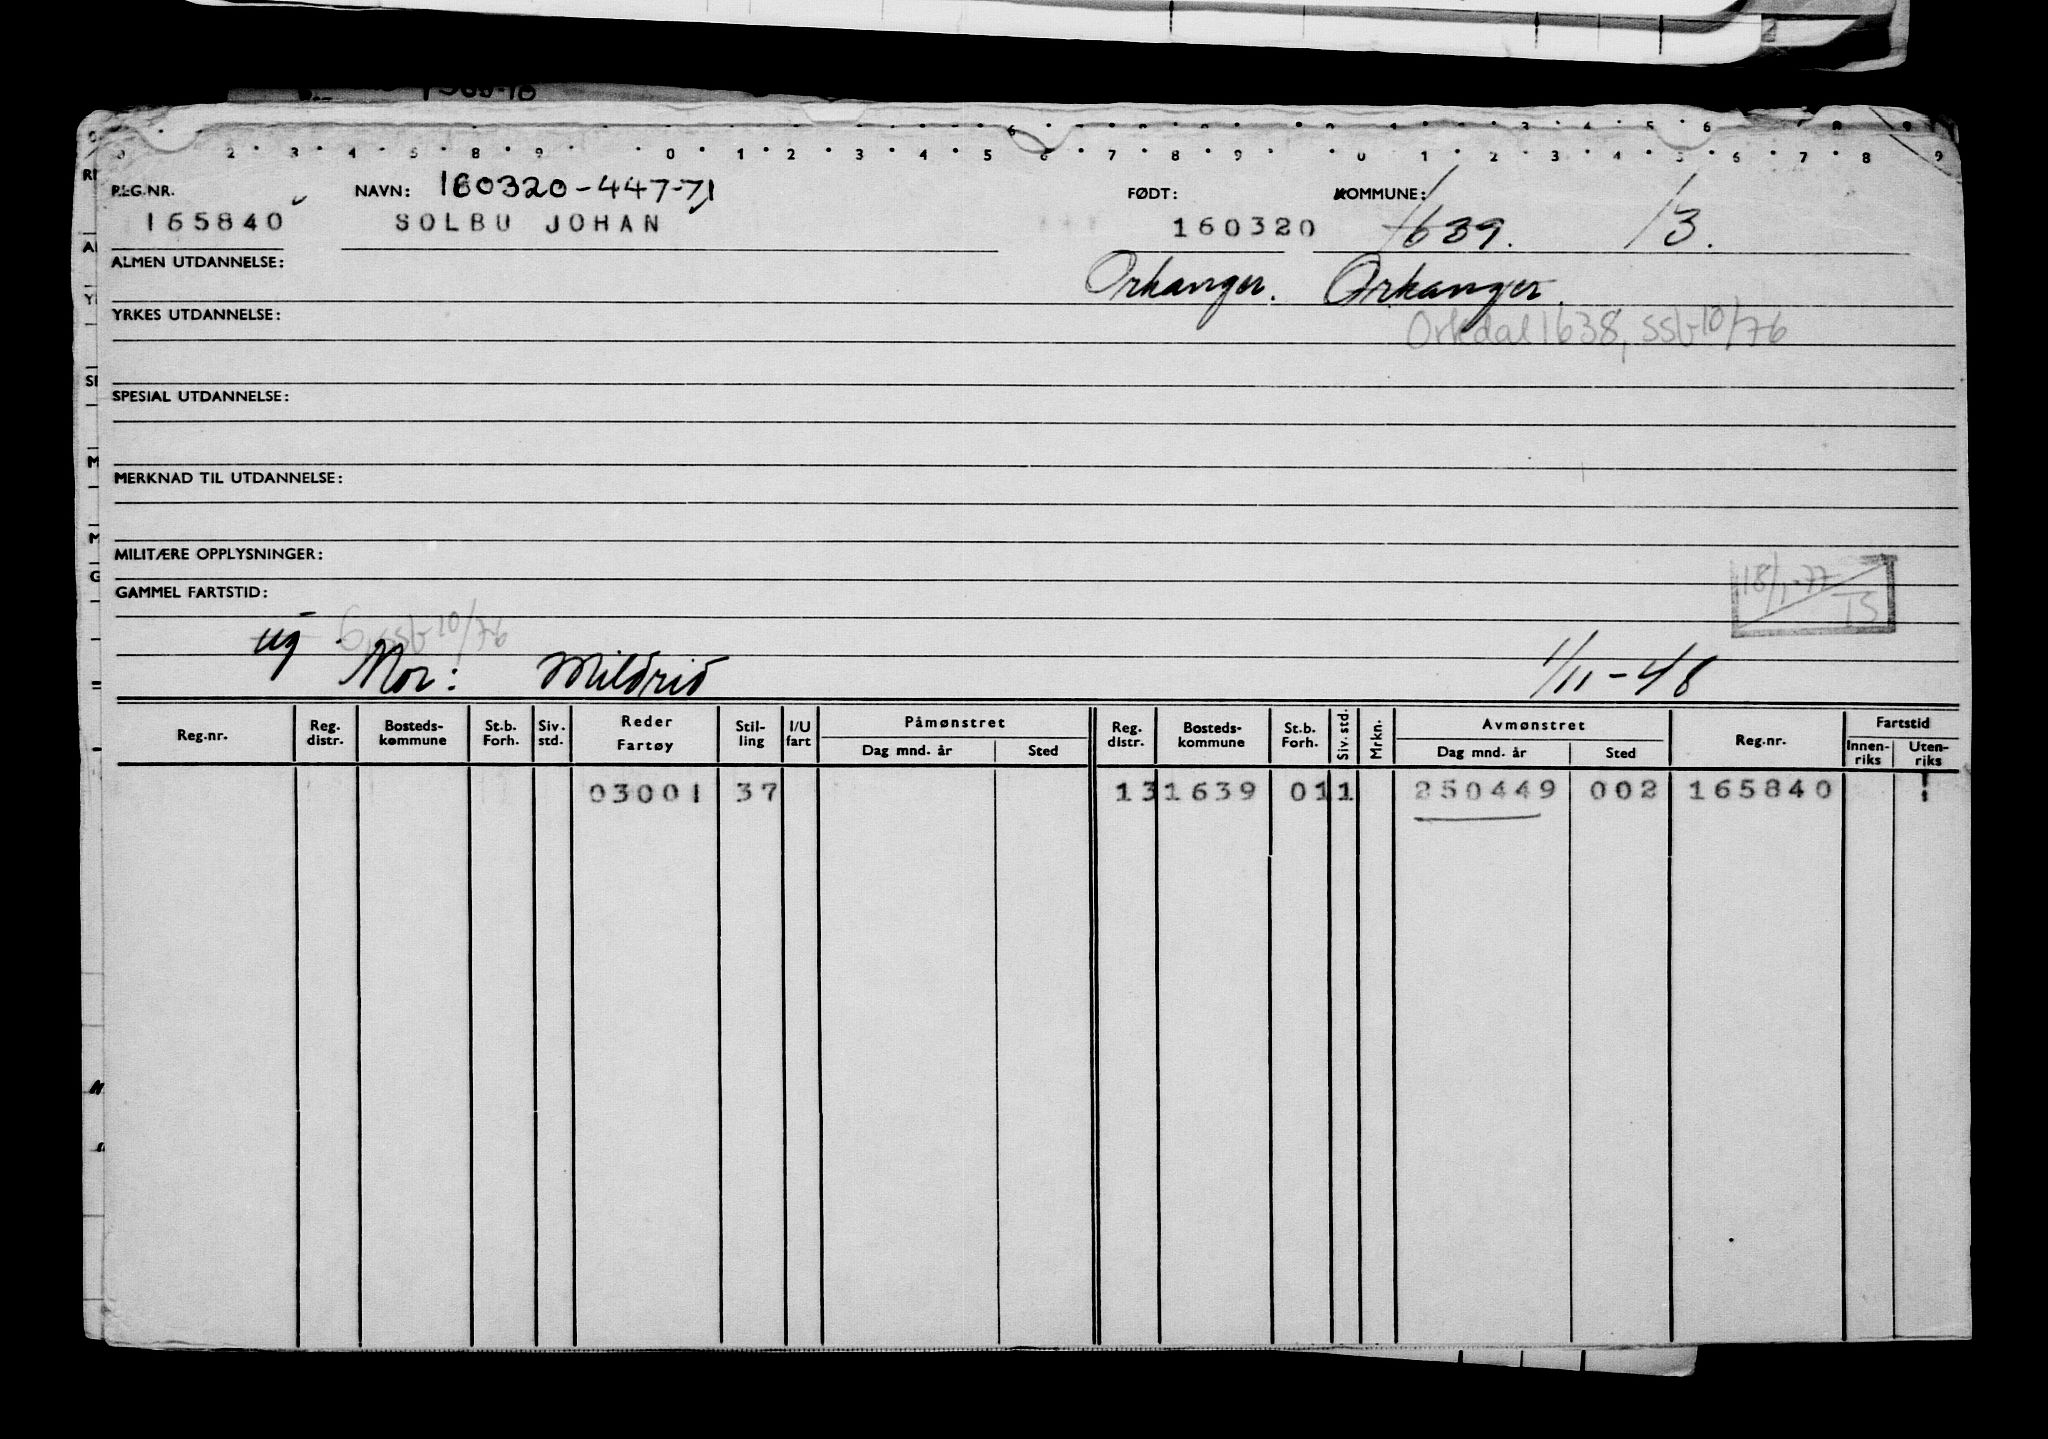 REG.NR. NAVN: 160320-447-71 FØDT: KOMMUNE:
165840 SOLBU JOHAN 160320 1639. 13.
ALMEN UTDANNELSE: Orkanger. Orkanger.
YRKES UTDANNELSE: Orkdal 1638, ssb 10/76
SPESIAL UTDANNELSE:
MERKNAD TIL UTDANNELSE:
MILITÆRE OPPLYSNINGER:
18/1-77
GAMMEL FARTSTID: TS
ug 6, ssb 10/76
Mor: Mildrid 1/11-48
Reg.nr. Reg. distr. Bosteds-kommune St.b. Forh. Siv. std. Reder Fartøy Stil-ling I/U fart Påmønstret Dag mnd. år Sted Reg. distr. Bosteds-kommune St.b. Forh. Siv. std. Mrkn. Avmønstret Dag mnd. år Sted Reg.nr. Fartstid Innen-riks Uten-riks
03001 37 13 1639 01 1 250449 002 165840